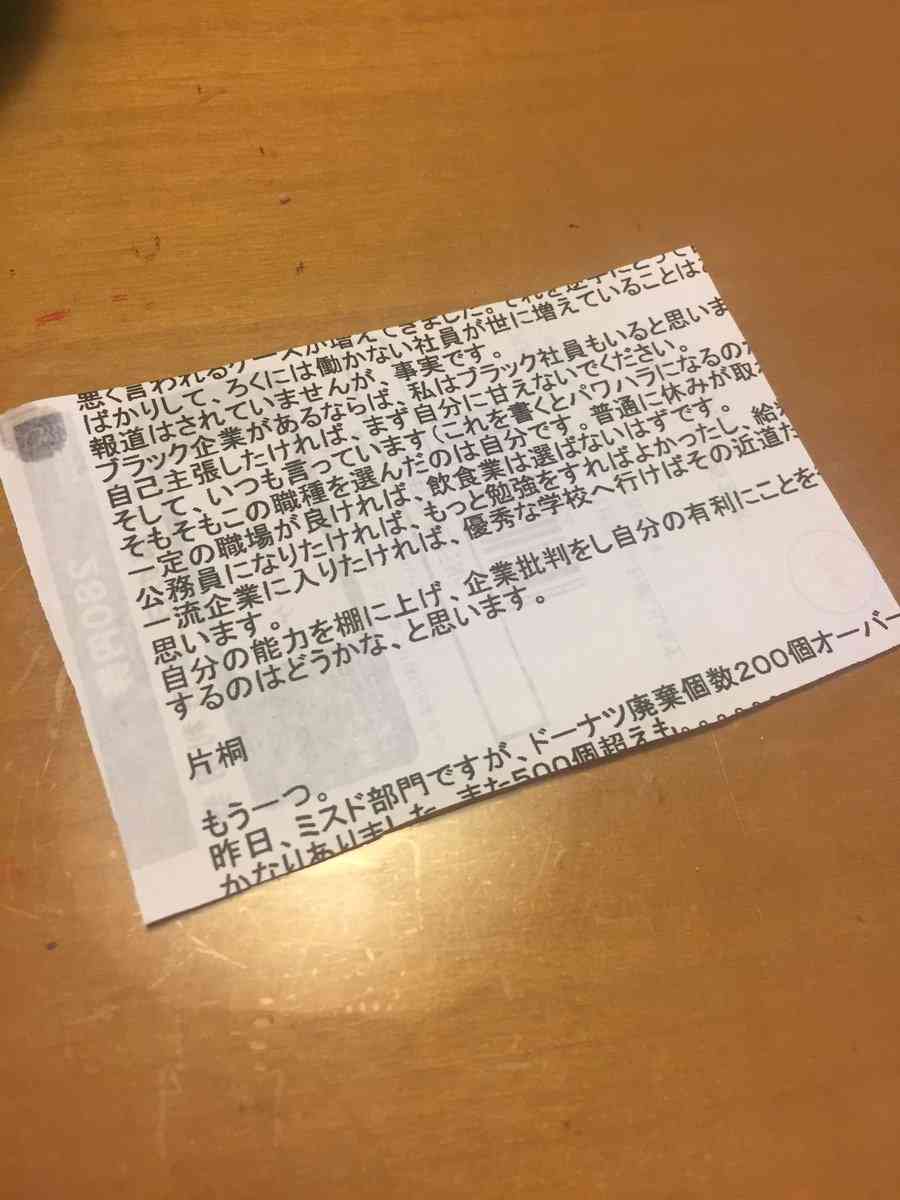 悪く言われるケースが増えてきました。それを逆手にとって
ばかりして、ろくには働かない社員が世に増えていることは
報道はされていませんが、事実です。
ブラック企業があるならば、私はブラック社員もいると思いま
自己主張したければ、まず自分に甘えないでください。
そして、いつも言っています(これを書くとパワハラになるのか
そもそもこの職種を選んだのは自分です。普通に休みが取
一定の職場が良ければ、飲食業は選ばないはずです。
公務員になりたければ、もっと勉強をすればよかったし、給
一流企業に入りたければ、優秀な学校へ行けばその近道だ
思います。
自分の能力を棚に上げ、企業批判をし自分の有利にことを
するのはどうかな、と思います。
片桐
もう一つ。
昨日、ミスド部門ですが、ドーナツ廃棄個数200個オーバー
かなりありました。また500個超えも。。。。。。